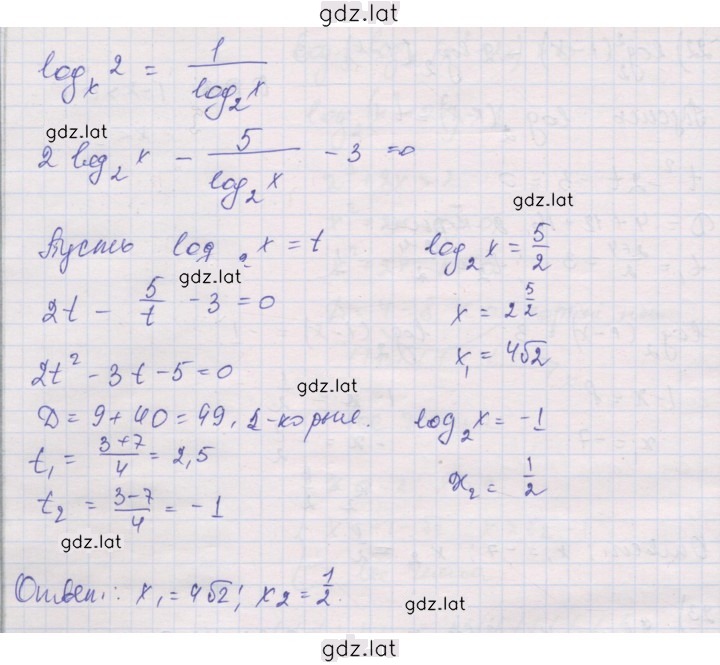 gdz.lat
log_x 2 = 1/log_2 x
gdz.lat
2 log_2 x - 5/log_2 x - 3 = 0
gdz.lat
Пусть log_2 x = t
gdz.lat
2t - 5/t - 3 = 0
2t² - 3t - 5 = 0
gdz.lat
D = 9 + 40 = 49, 2-корня.
t₁ = (3+7)/4 = 2,5
t₂ = (3-7)/4 = -1
gdz.lat
log_2 x = 5/2
x = 2^(5/2)
x₁ = 4√2
log_2 x = -1
x₂ = 1/2
Ответ: x₁ = 4√2; x₂ = 1/2.
gdz.lat
gdz.lat